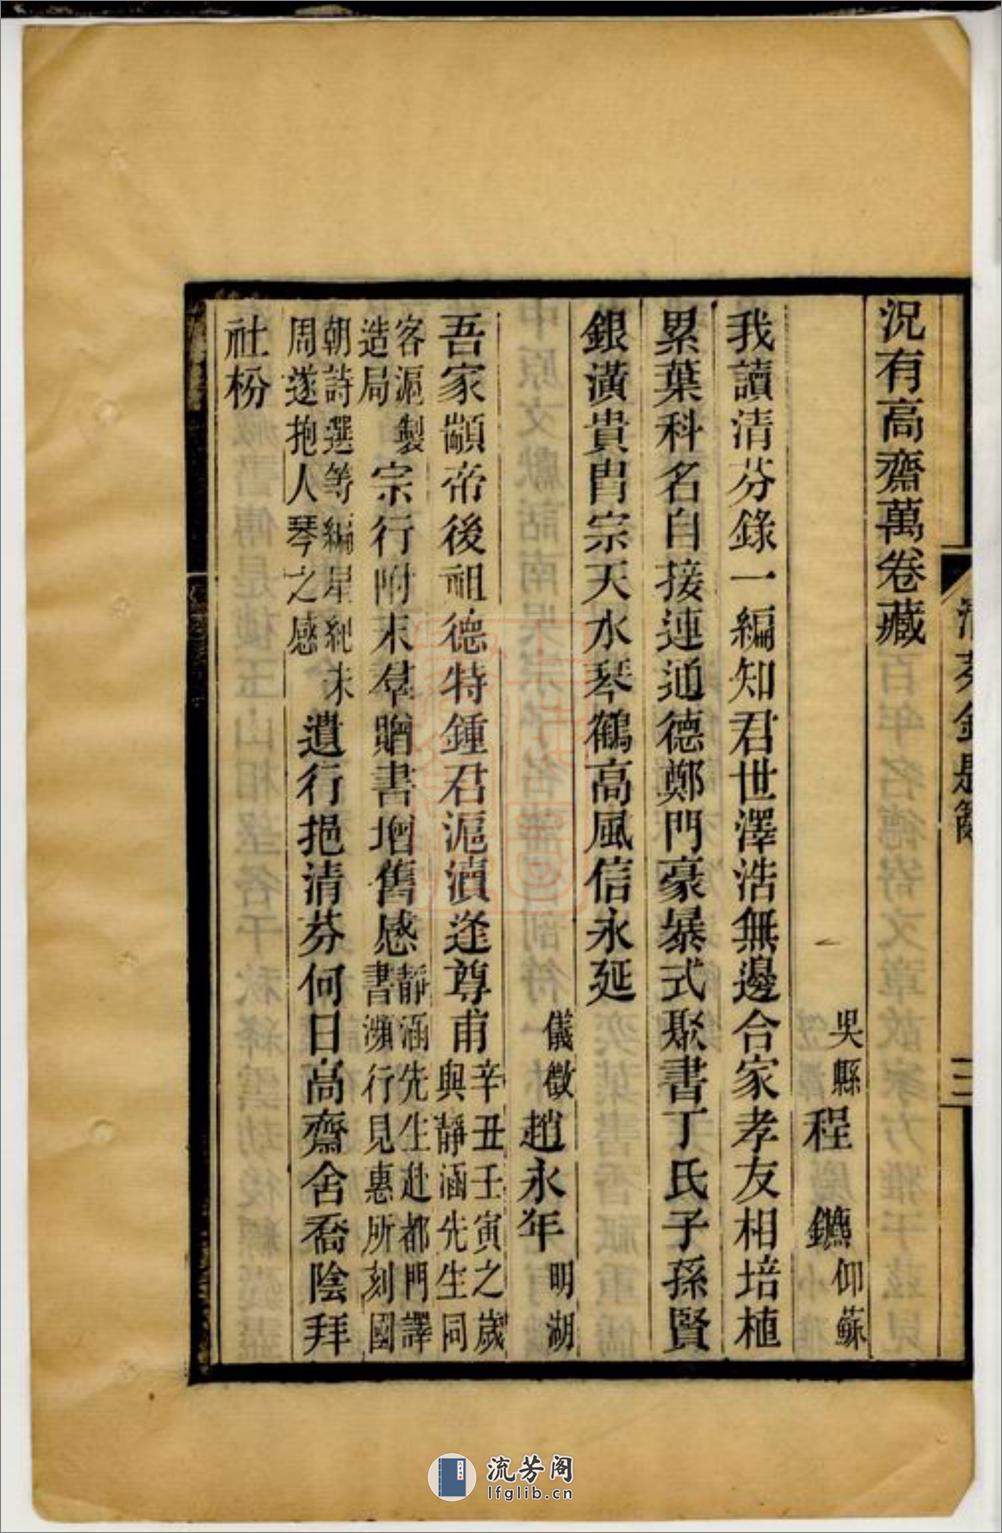 況有高齋萬卷藏
吳縣 程鑣 仰蘇
我讀清芬錄一編知君世澤浩無邊合家孝友相培植
累葉科名自接連通德鄭門豪暴式聚書丁氏子孫賢
銀潢貴胄宗天水琴鶴高風信永延
儀徵 趙永年 明湖
吾家顓帝後祖德特鍾君滬瀆逢尊甫辛丑壬寅之歲與靜涵先生同
客滬製造局宗行附末羣贈書增舊感靜涵先生赴都門譯書瀕行見惠所刻國
朝詩選等編星紀未周遂抱人琴之感遺行挹清芬何日高齋舍喬陰拜
社枌
三
流芳阁
lfglib.cn